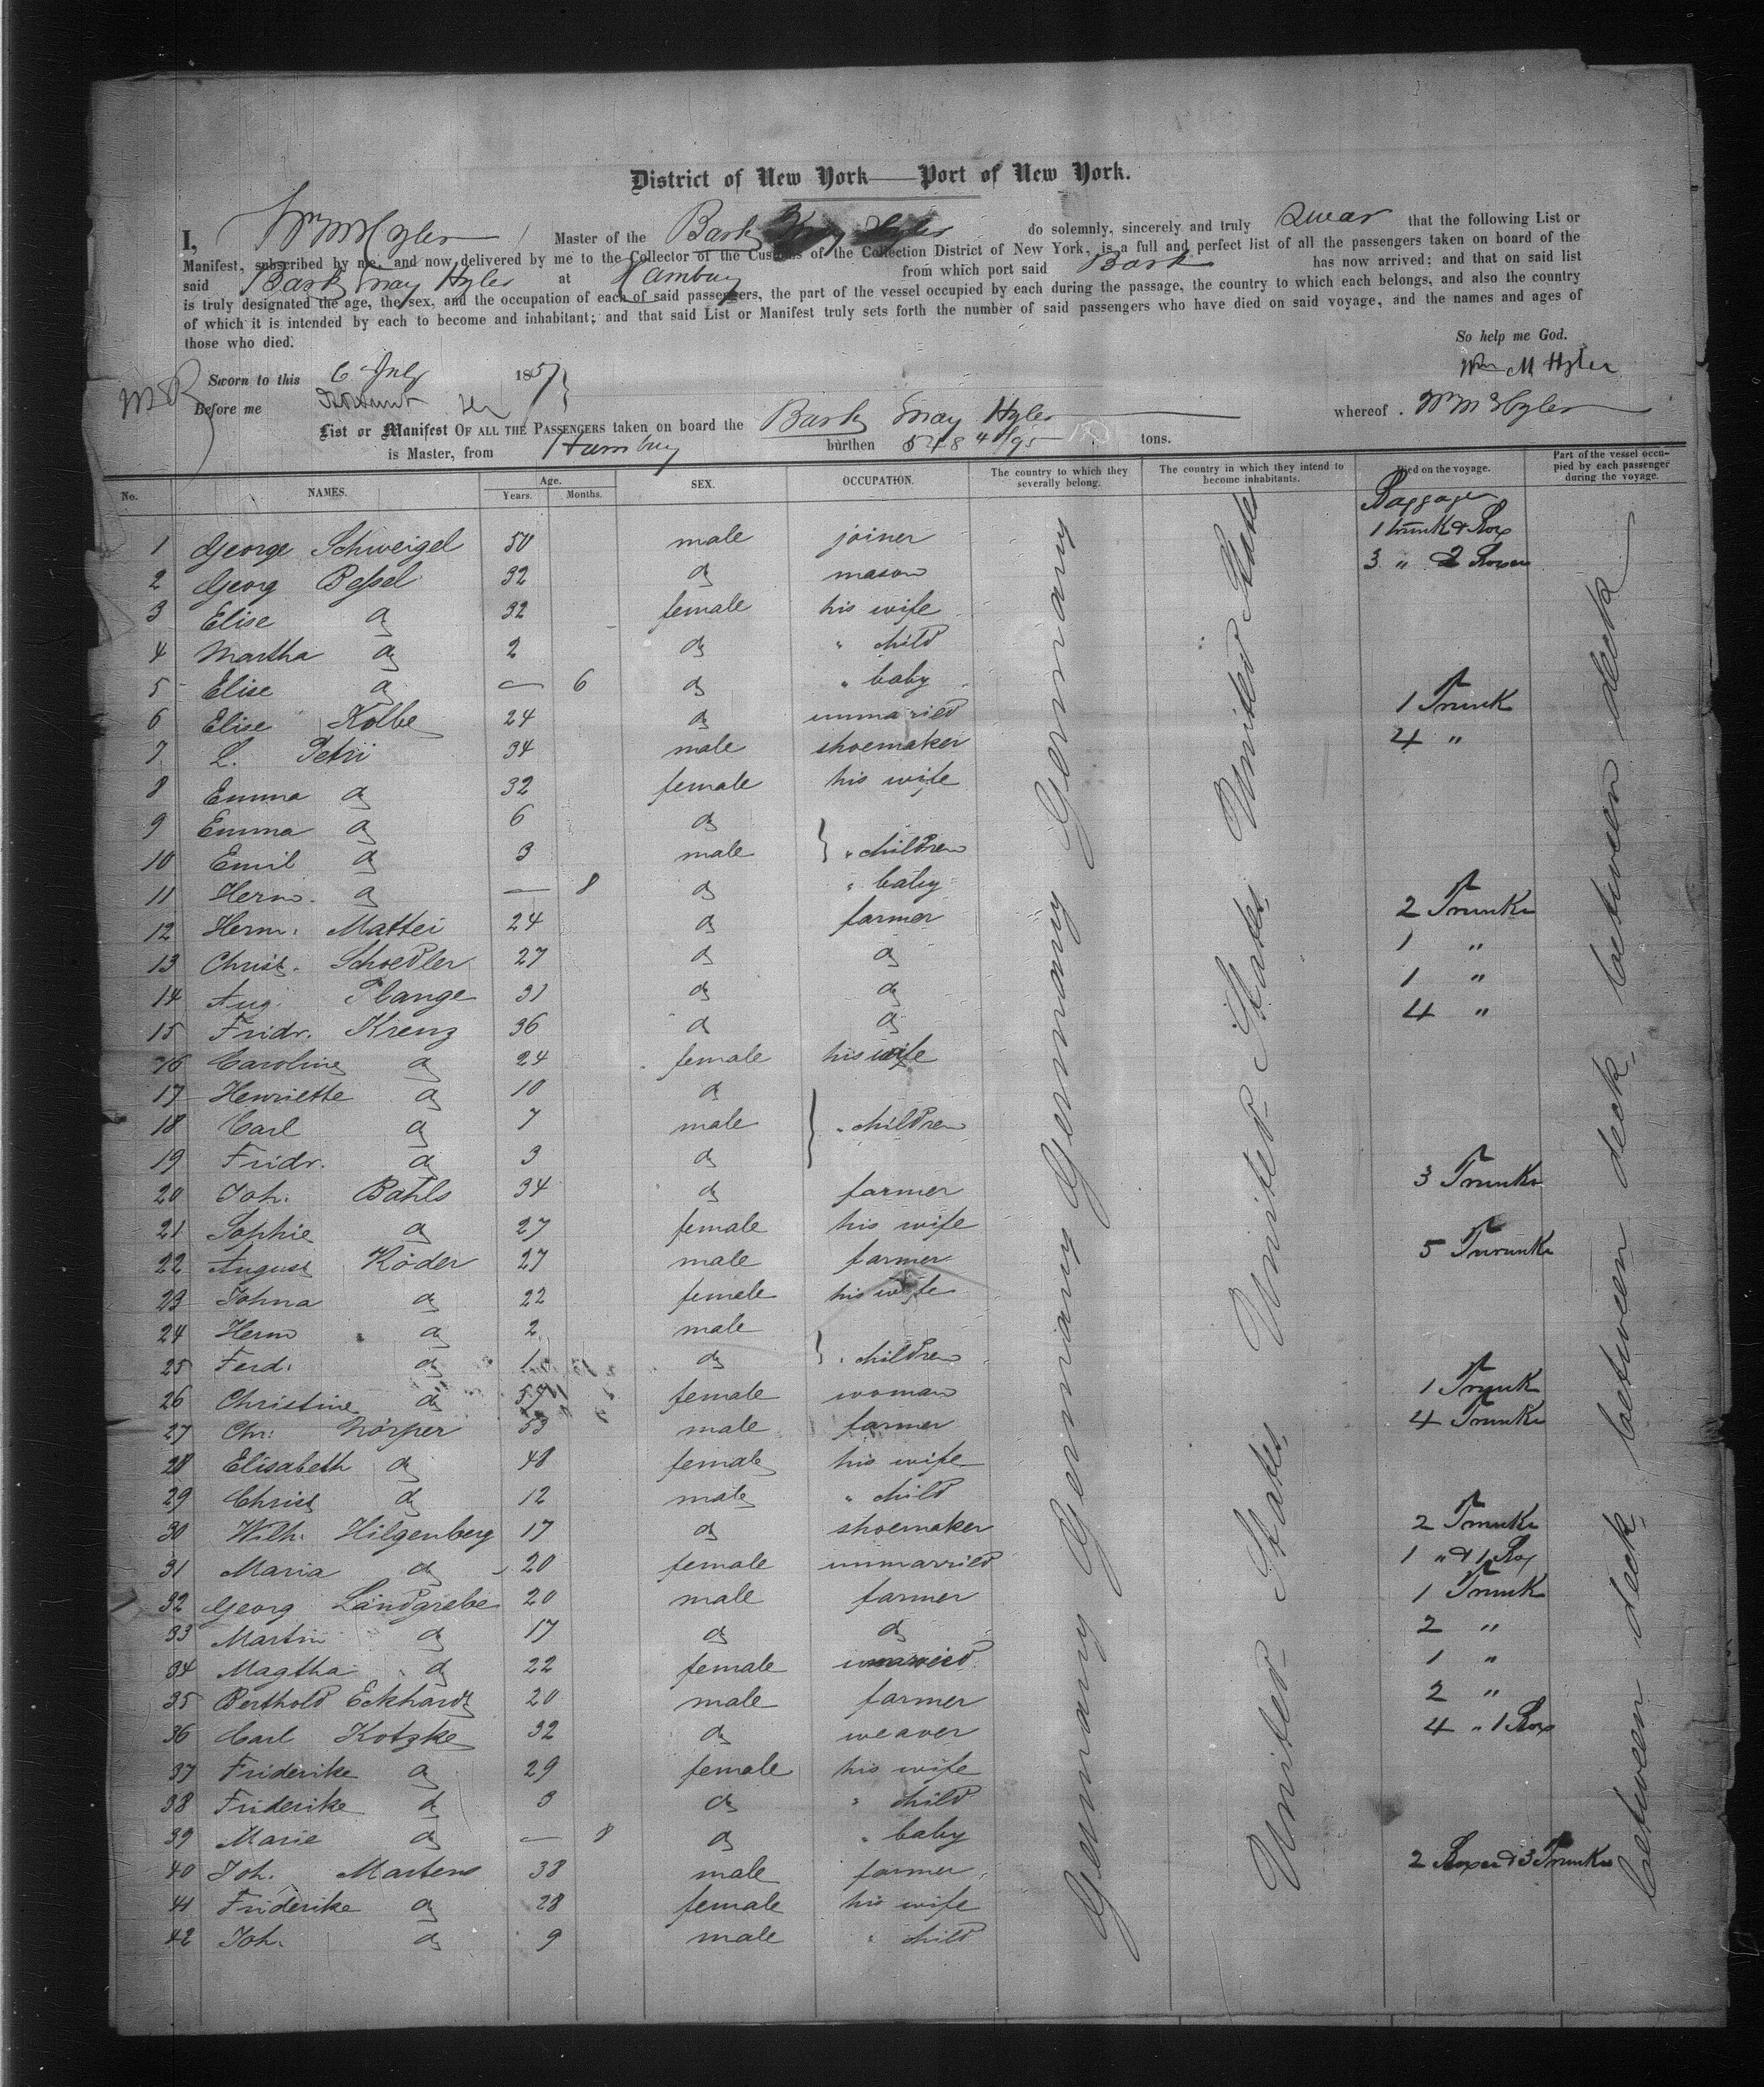 District of New York—Port of New York.
I, Wm M Hyler Master of the Bark May Hyler do solemnly, sincerely and truly swear that the following List or
Manifest, subscribed by me, and now delivered by me to the Collector of the Customs of the Collection District of New York, is a full and perfect list of all the passengers taken on board of the
said Bark May Hyler at Hamburg from which port said Bark has now arrived; and that on said list
is truly designated the age, the sex, and the occupation of each of said passengers, the part of the vessel occupied by each during the passage, the country to which each belongs, and also the country
of which it is intended by each to become and inhabitant; and that said List or Manifest truly sets forth the number of said passengers who have died on said voyage, and the names and ages of
those who died. So help me God.
Sworn to this 6 July 1857 Wm M Hyler
Before me
List or Manifest OF ALL THE PASSENGERS taken on board the Bark May Hyler whereof Wm M Hyler
is Master, from Hamburg burthen 548 4/95 tons.
No. NAMES. Age. Years. Months. SEX. OCCUPATION. The country to which they severally belong. The country in which they intend to become inhabitants. Died on the voyage. Part of the vessel occupied by each passenger during the voyage.
Baggage
1 George Schweigel 50 male joiner 1 trunk & Box
2 Georg Bessel 32 do mason 3 " 2 Boxes
3 Elise do 32 female his wife
4 Martha do 2 do " child
5 Elise do — 6 do " baby
6 Elise Kolbe 24 do unmaried 1 Trunk
7 L. Petri 34 male shoemaker 4 "
8 Emma do 32 female his wife
9 Emma do 6 do
10 Emil do 3 male } " children
11 Herm. do — 8 do " baby
12 Herm. Mattei 24 do farmer 2 Trunks
13 Christ. Schoedler 27 do do 1 "
14 Aug. Plange 31 do do 1 "
15 Fridr. Krenz 36 do do 4 "
16 Caroline do 24 female his wife
17 Henriette do 10 do
18 Carl do 7 male } " children
19 Fridr. do 3 do
20 Joh. Bahls 34 do farmer 3 Trunks
21 Sophie do 27 female his wife
22 August Röder 27 male farmer 5 Trunks
23 Johna do 22 female his wife
24 Herm do 2 male
25 Ferd. do 1 do } " children
26 Christine do 57 female woman 1 Trunk
27 Chr. Nörper 53 male farmer 4 Trunks
28 Elisabeth do 48 female his wife
29 Christ do 12 male " child
30 Wilh. Hilgenberg 17 do shoemaker 2 Trunks
31 Maria do 20 female unmarried 1 " & 1 Box
32 Georg Landgrebe 20 male farmer 1 Trunk
33 Martin do 17 do do 2 "
34 Magtha do 22 female unmarried 1 "
35 Berthold Eckhardt 20 male farmer 2 "
36 Carl Kotzke 32 do weaver 4 " 1 Box
37 Friderike do 29 female his wife
38 Friderike do 3 do " child
39 Marie do — 8 do " baby
40 Joh. Martens 38 male farmer 2 Boxes & 3 Trunks
41 Friderike do 28 female his wife
42 Joh. do 9 male " child
Germany Germany Germany Germany Germany
United States, United States, United States
between deck, between deck, between deck